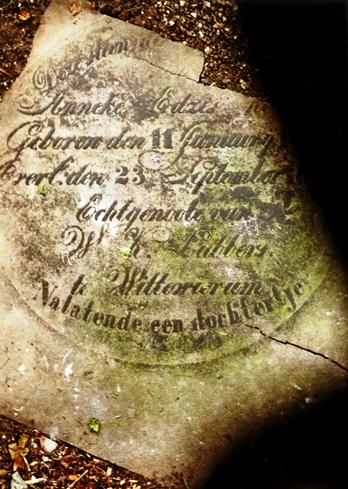 Deze steen
Anneke Edzes
Geboren den 11 January
Overl. den 23 September
Echtgenoote van
W. K. Lubbers
te Wittewierum
Nalatende een dochtertje